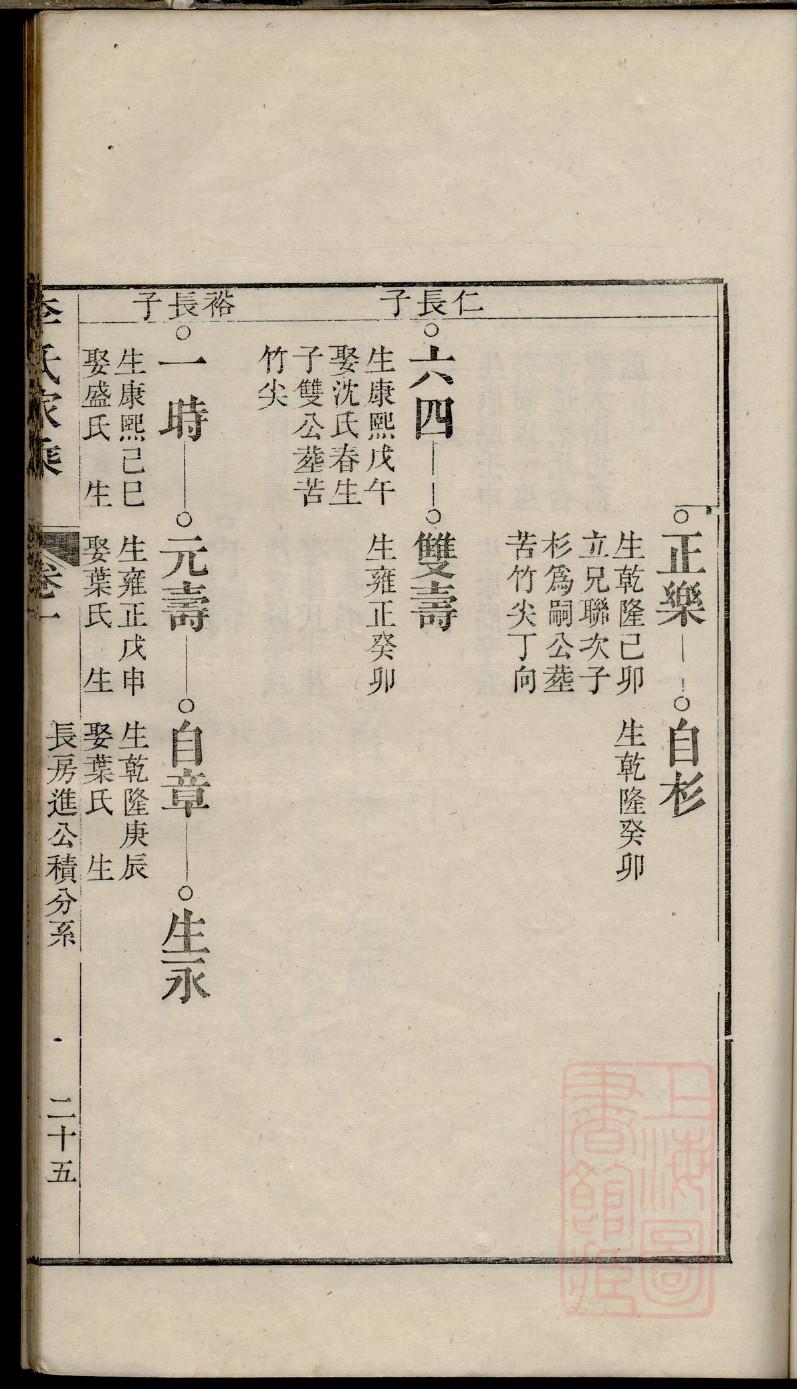 正樂
生乾隆己卯
立兄聯次子
杉爲嗣公塟
苦竹尖丁向
自杉
生乾隆癸卯
仁長子
六四
生康熙戊午
娶沈氏春生
子雙公塟苦
竹尖
雙壽
生雍正癸卯
裕長子
一時
生康熙己巳
娶盛氏 生
元壽
生雍正戊申
娶葉氏 生
自章
生乾隆庚辰
娶葉氏 生
生永
李氏家乘
卷一
長房進公積分系
二十五
上海圖
書館藏